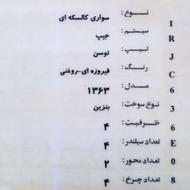 نوع : سواری کالسکه ای
سیستم : جیپ
تیپ : توسن
رنگ : فیروزه ای-روغنی
مدل : ۱۳۶۳
نوع سوخت : بنزین
ظرفیت : ۴
تعداد سیلندر : ۴
تعداد محور : ۲
تعداد چرخ : ۴
I
R
J
C
6
3
6
E
0
8